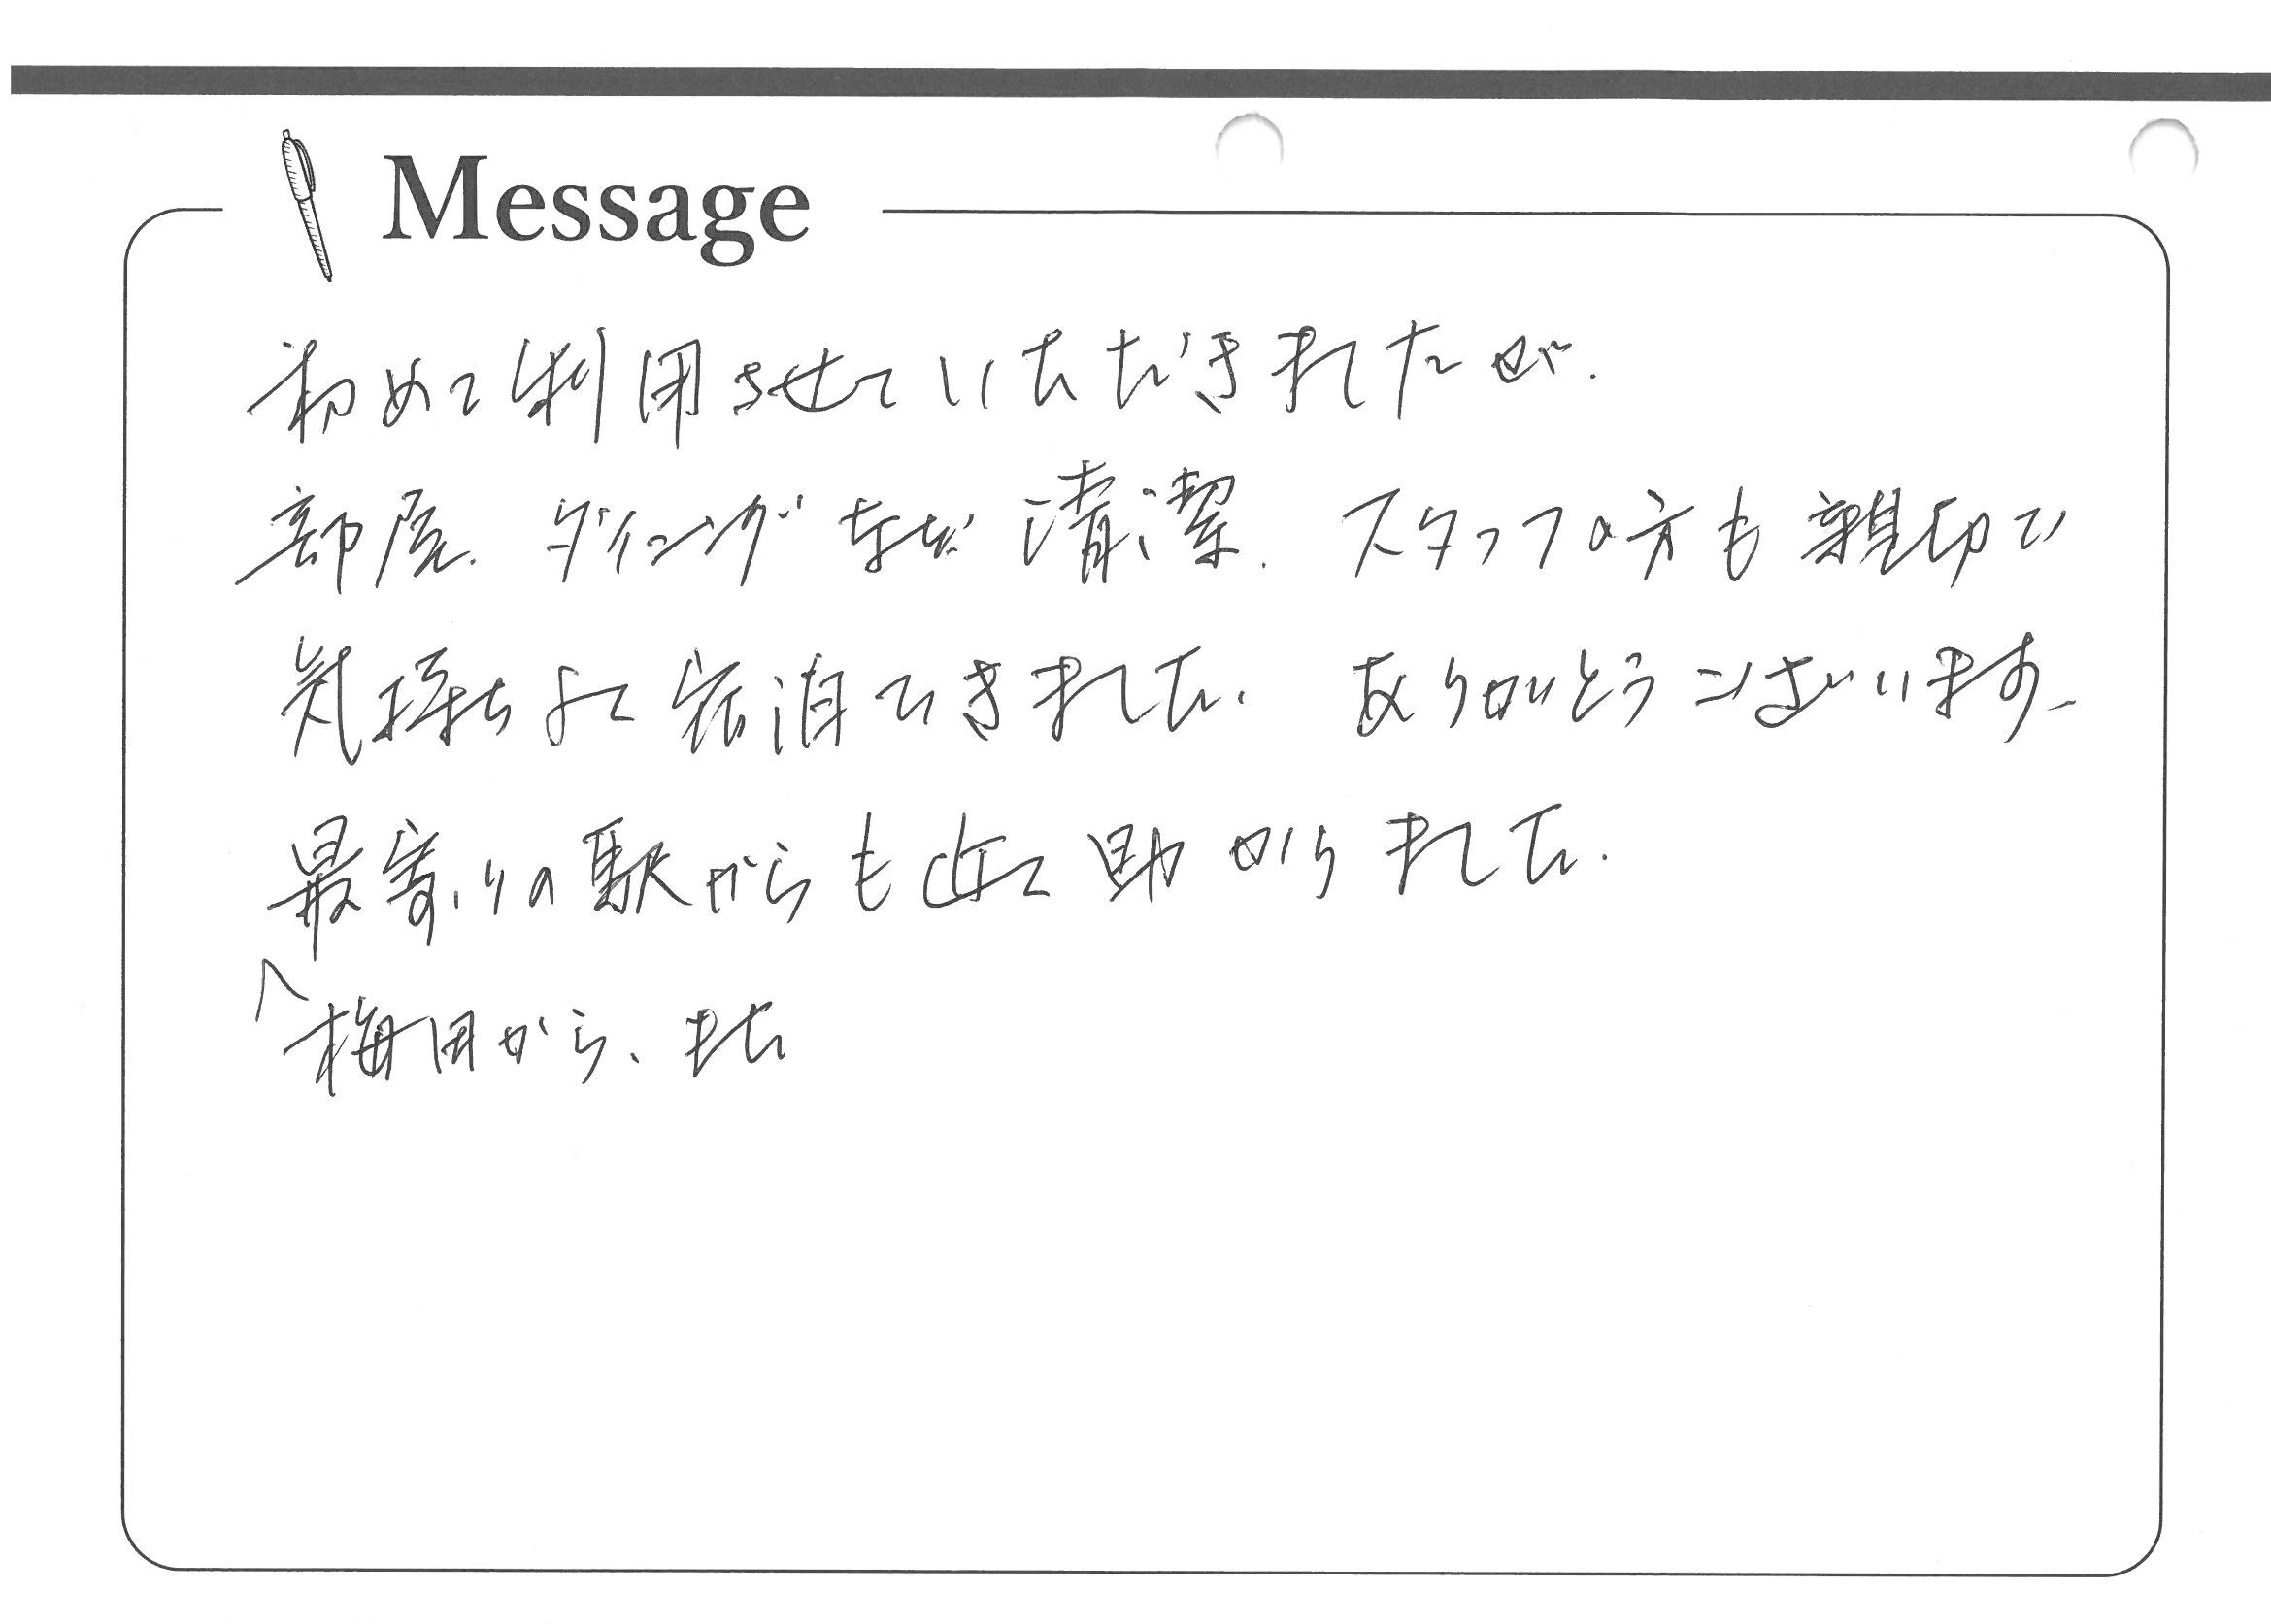 Message
初めて利用させていただきましたが、
部屋、ダイニングなど清潔、スタッフの方も親切で
気持ちよく宿泊できました。ありがとうございます。
最寄りの駅からも近く助かりました。
梅田から、また